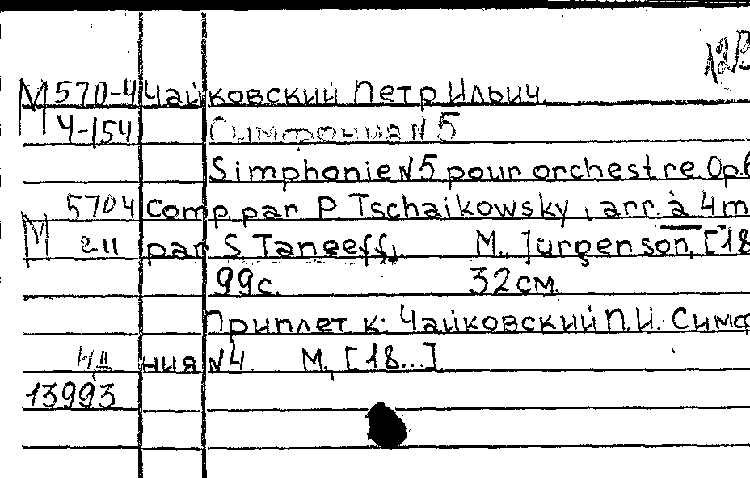 М 570-4 Чайковский Петр Ильич
Ч-154 Симфония N 5
Simphonie N 5 pour orchestre Op 6
5704 Comp. par P Tschaikowsky, arr. à 4 m
М par S Taneeff, M., Jurgenson, [18
99 с. 32 см
Приплет к: Чайковский П.И. Симфо
ния N 4 М, [18...]
13993